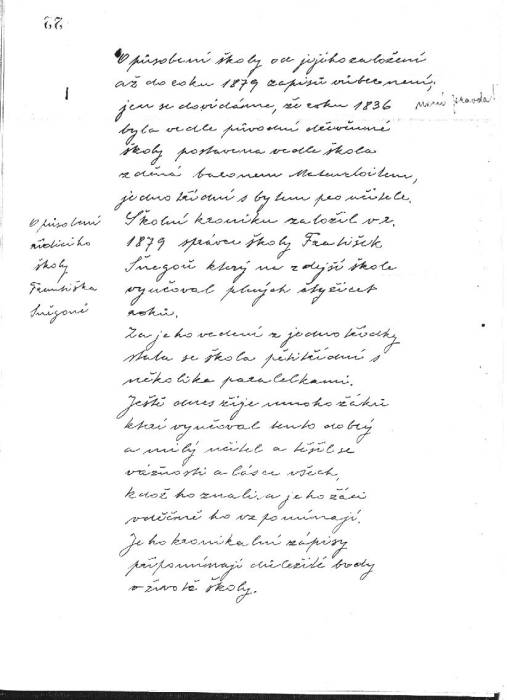 22
O působení školy od jejího založení
až do roku 1879 zápisů vůbec není,
jen se dovídáme, že roku 1836
není pravda!
byla vedle původní dřevěnné
školy postavena vedle škola
zděná baronem
jednotřídní s bytem pro učitele.
O působení
řídícího
školy
Františka
Šnegoně
Školní kroniku založil v r.
1879 správce školy František
Šnegoň který na zdejší škole
vyučoval plných štyřicet
roků.
Za jeho vedení z jednotřídky
stala se škola pětitřídní s
několika paralelkami.
Ještě dnes žije mnoho žáků
které vyučoval tento dobrý
a milý učitel a těšil se
vážnosti a lásce všech,
kdož ho znali, a jeho žáci
vděčně ho vzpomínají.
Jeho kronikální zápisy
připomínají důležité body
v životě školy.